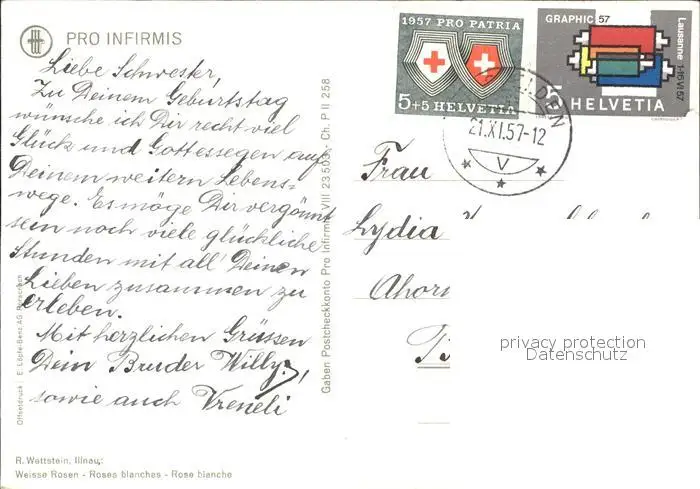 PRO INFIRMIS
Liebe Schwester,
Zu Deinem Geburtstag
wünsche ich Dir recht viel
Glück und Gottessegen auf
Deinem weitern Lebens=
wege. Es möge Dir vergönnt
sein noch viele glückliche
Stunden mit all Deinen
Lieben zusammen zu
erleben.
Mit herzlichen Grüssen
Dein Bruder Willy,
sowie auch Vreneli
R. Wettstein, Illnau:
Weisse Rosen - Roses blanches - Rose bianche
Offsetdruck: E. Löpfe-Benz AG. Rorschach
Gaben Postcheckkonto Pro Infirmis VIII 23 503 - Ch. P II 258
1957 PRO PATRIA
5+5 HELVETIA
GRAPHIC 57
Lausanne 1-16 VI 57
5 HELVETIA
21.XI.57-12
V
Frau
Lydia
Ahorn
privacy protection
Datenschutz